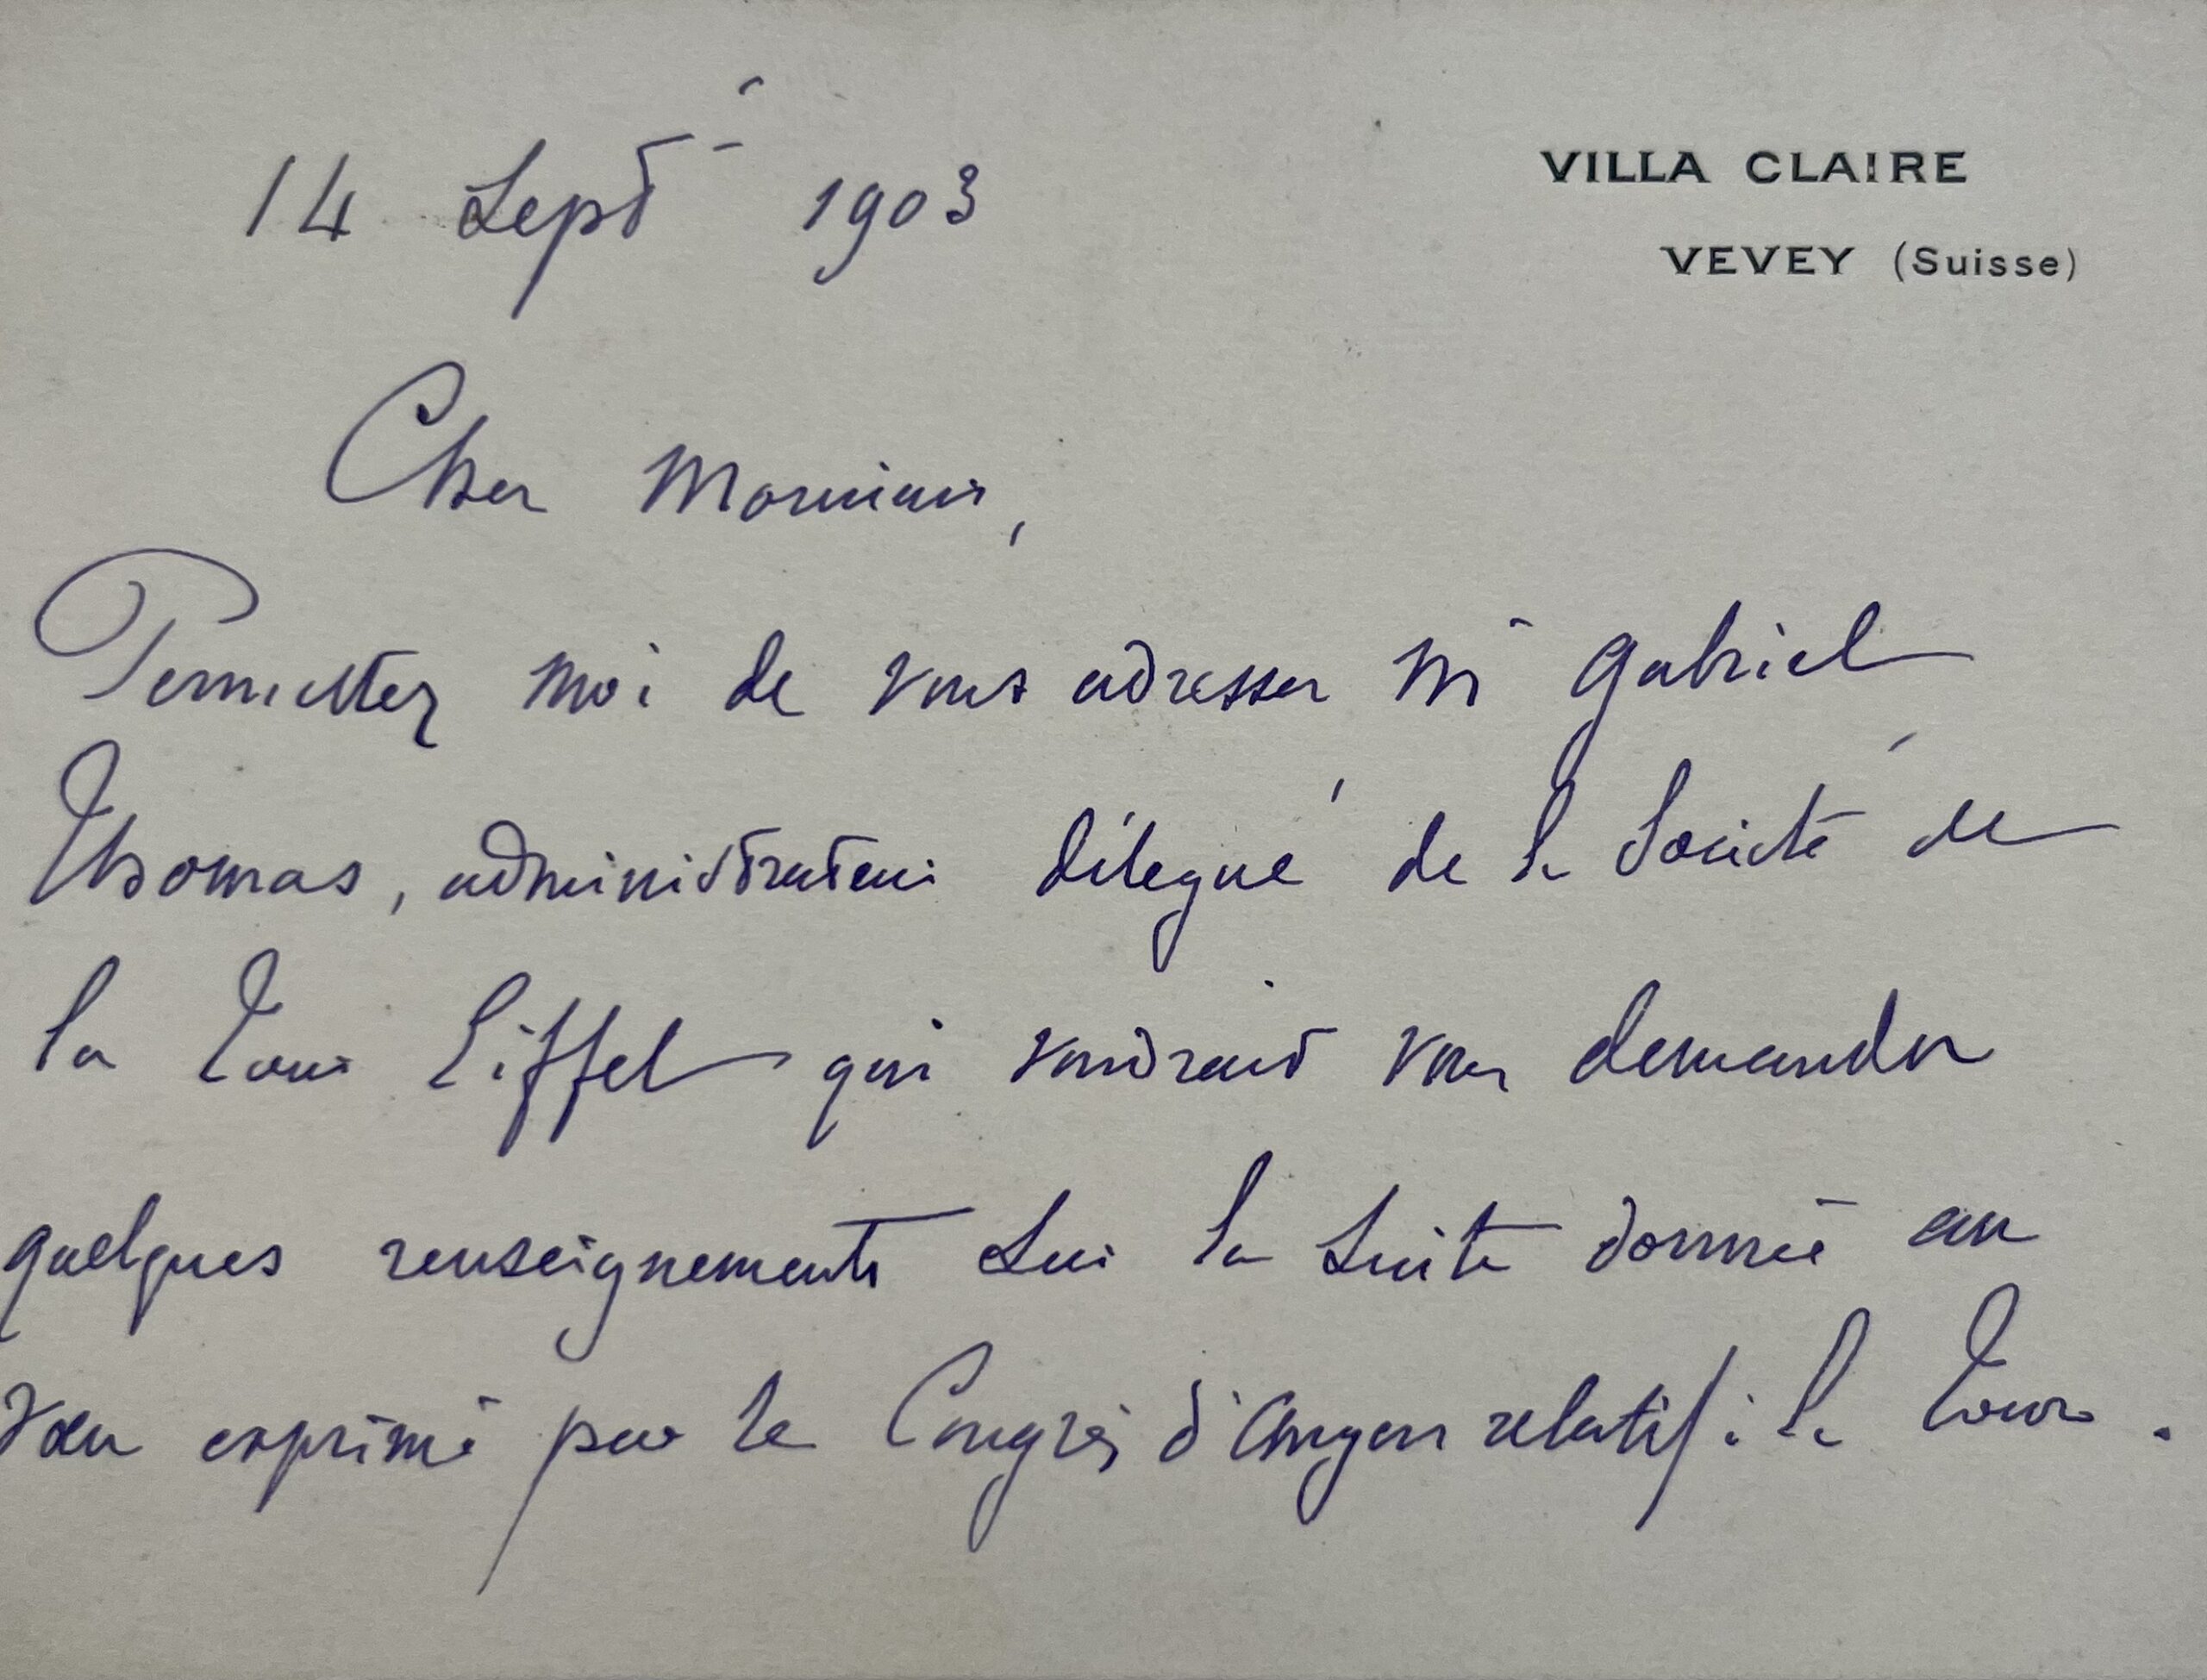 14 Septre 1903
VILLA CLAIRE
VEVEY (Suisse)
Cher Monsieur,
Permettez moi de vous adresser Mr Gabriel
Thomas, administrateur délégué de la Société de
la Tour Eiffel qui voudrait vous demander
quelques renseignements sur la suite donnée au
vœu exprimé par le Congrès d'Angers relatif à la Tour.